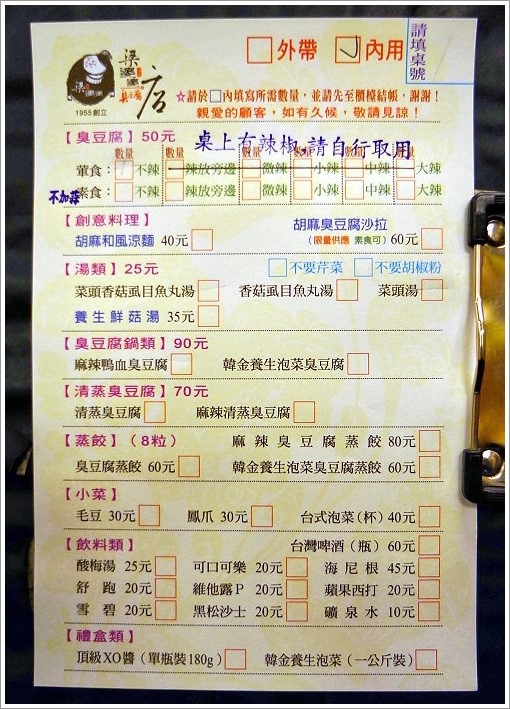 請填桌號
□外帶 □內用
梁婆婆
臭豆腐
店
1955創立
☆請於□內填寫所需數量，並請先至櫃檯結帳，謝謝！
親愛的顧客，如有久候，敬請見諒！
【臭豆腐】50元 桌上有辣椒,請自行取用
數量 數量 數量 數量 數量 數量
葷食：□不辣 □辣放旁邊 □微辣 □小辣 □中辣 □大辣
素食：□不辣 □辣放旁邊 □微辣 □小辣 □中辣 □大辣
不加蒜
【創意料理】 胡麻臭豆腐沙拉
胡麻和風涼麵 40元□ (限量供應 素食可) 60元□
【湯類】25元 □不要芹菜 □不要胡椒粉
菜頭香菇虱目魚丸湯□ 香菇虱目魚丸湯□ 菜頭湯□
養生鮮菇湯 35元□
【臭豆腐鍋類】90元
麻辣鴨血臭豆腐□ 韓金養生泡菜臭豆腐□
【清蒸臭豆腐】70元
清蒸臭豆腐□ 麻辣清蒸臭豆腐□
【蒸餃】(8粒) 麻辣臭豆腐蒸餃 80元□
臭豆腐蒸餃 60元□ 韓金養生泡菜臭豆腐蒸餃 60元□
【小菜】
毛豆 30元□ 鳳爪 30元□ 台式泡菜(杯) 40元□
【飲料類】 台灣啤酒(瓶) 60元□
酸梅湯 25元□ 可口可樂 20元□ 海尼根 45元□
舒跑 20元□ 維他露P 20元□ 蘋果西打 20元□
雪碧 20元□ 黑松沙士 20元□ 礦泉水 10元□
【禮盒類】
頂級XO醬(單瓶裝180g)□ 韓金養生泡菜(一公斤裝)□